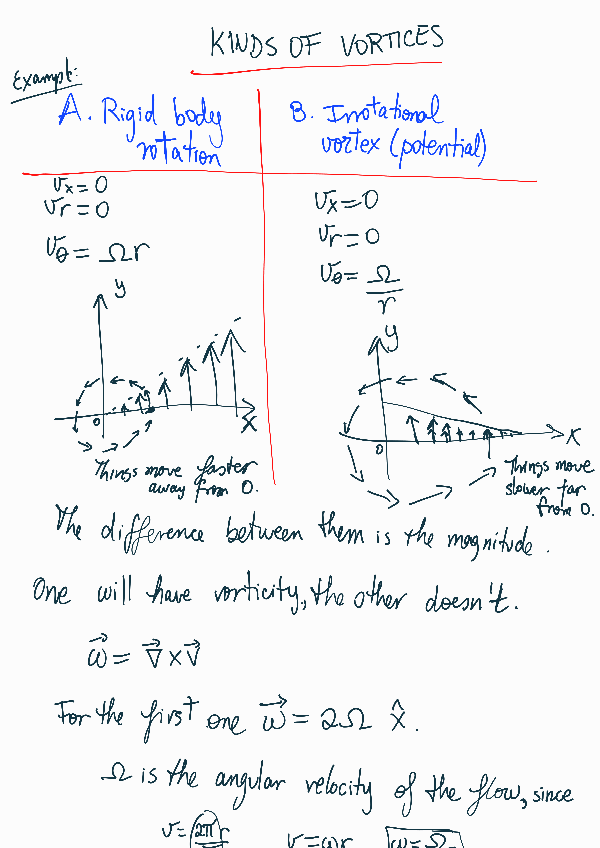 KINDS OF VORTICES
Example:
A. Rigid body
rotation
vx = 0
vr = 0
vθ = Ωr
y
0
x
Things move faster
away from 0.
B. Irrotational
vortex (potential)
vx = 0
vr = 0
vθ = Ω/r
y
0
x
Things move
slower far
from 0.
The difference between them is the magnitude.
One will have vorticity, the other doesn't.
ω⃗ = ∇⃗ x v⃗
For the first one ω⃗ = 2Ω x̂.
Ω is the angular velocity of the flow, since
v = 2π r v = ωr ω = Ω